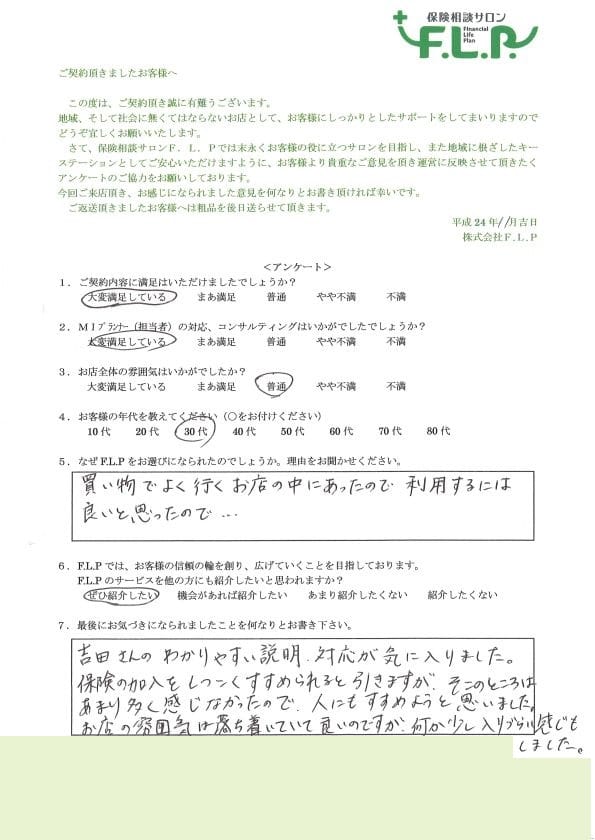 保険相談サロン
F.L.P.
Financial
Life
Plan
ご契約頂きましたお客様へ
この度は、ご契約頂き誠に有難うございます。
地域、そして社会に無くてはならないお店として、お客様にしっかりとしたサポートをしてまいりますので
どうぞ宜しくお願いいたします。
さて、保険相談サロンF．L．Pでは末永くお客様の役に立つサロンを目指し、また地域に根ざしたキー
ステーションとしてご安心いただけますように、お客様より貴重なご意見を頂き運営に反映させて頂きたく
アンケートのご協力をお願いしております。
今回ご来店頂き、お感じになられました意見を何なりとお書き頂ければ幸いです。
ご返送頂きましたお客様へは粗品を後日送らせて頂きます。
平成24年11月吉日
株式会社F.L.P
＜アンケート＞
1．ご契約内容に満足はいただけましたでしょうか？
大変満足している　まあ満足　普通　やや不満　不満
2．MIプランナー（担当者）の対応、コンサルティングはいかがでしたでしょうか？
大変満足している　まあ満足　普通　やや不満　不満
3．お店全体の雰囲気はいかがでしたか？
大変満足している　まあ満足　普通　やや不満　不満
4．お客様の年代を教えてください（○をお付けください）
10代　20代　30代　40代　50代　60代　70代　80代
5．なぜF.L.Pをお選びになられたのでしょうか。理由をお聞かせください。
買い物でよく行くお店の中にあったので 利用するには
良いと思ったので…
6．F.L.Pでは、お客様の信頼の輪を創り、広げていくことを目指しております。
F.L.Pのサービスを他の方にも紹介したいと思われますか？
ぜひ紹介したい　機会があれば紹介したい　あまり紹介したくない　紹介したくない
7．最後にお気づきになられましたことを何なりとお書き下さい。
吉田さんの わかりやすい説明、対応が気に入りました。
保険の加入をしつこくすすめられると引きますが、そこのところは
あまり多く感じなかったので、人にもすすめようと思いました。
お店の雰囲気は落ち着いていて良いのですが、何か少し入りづらい感じも
しました。